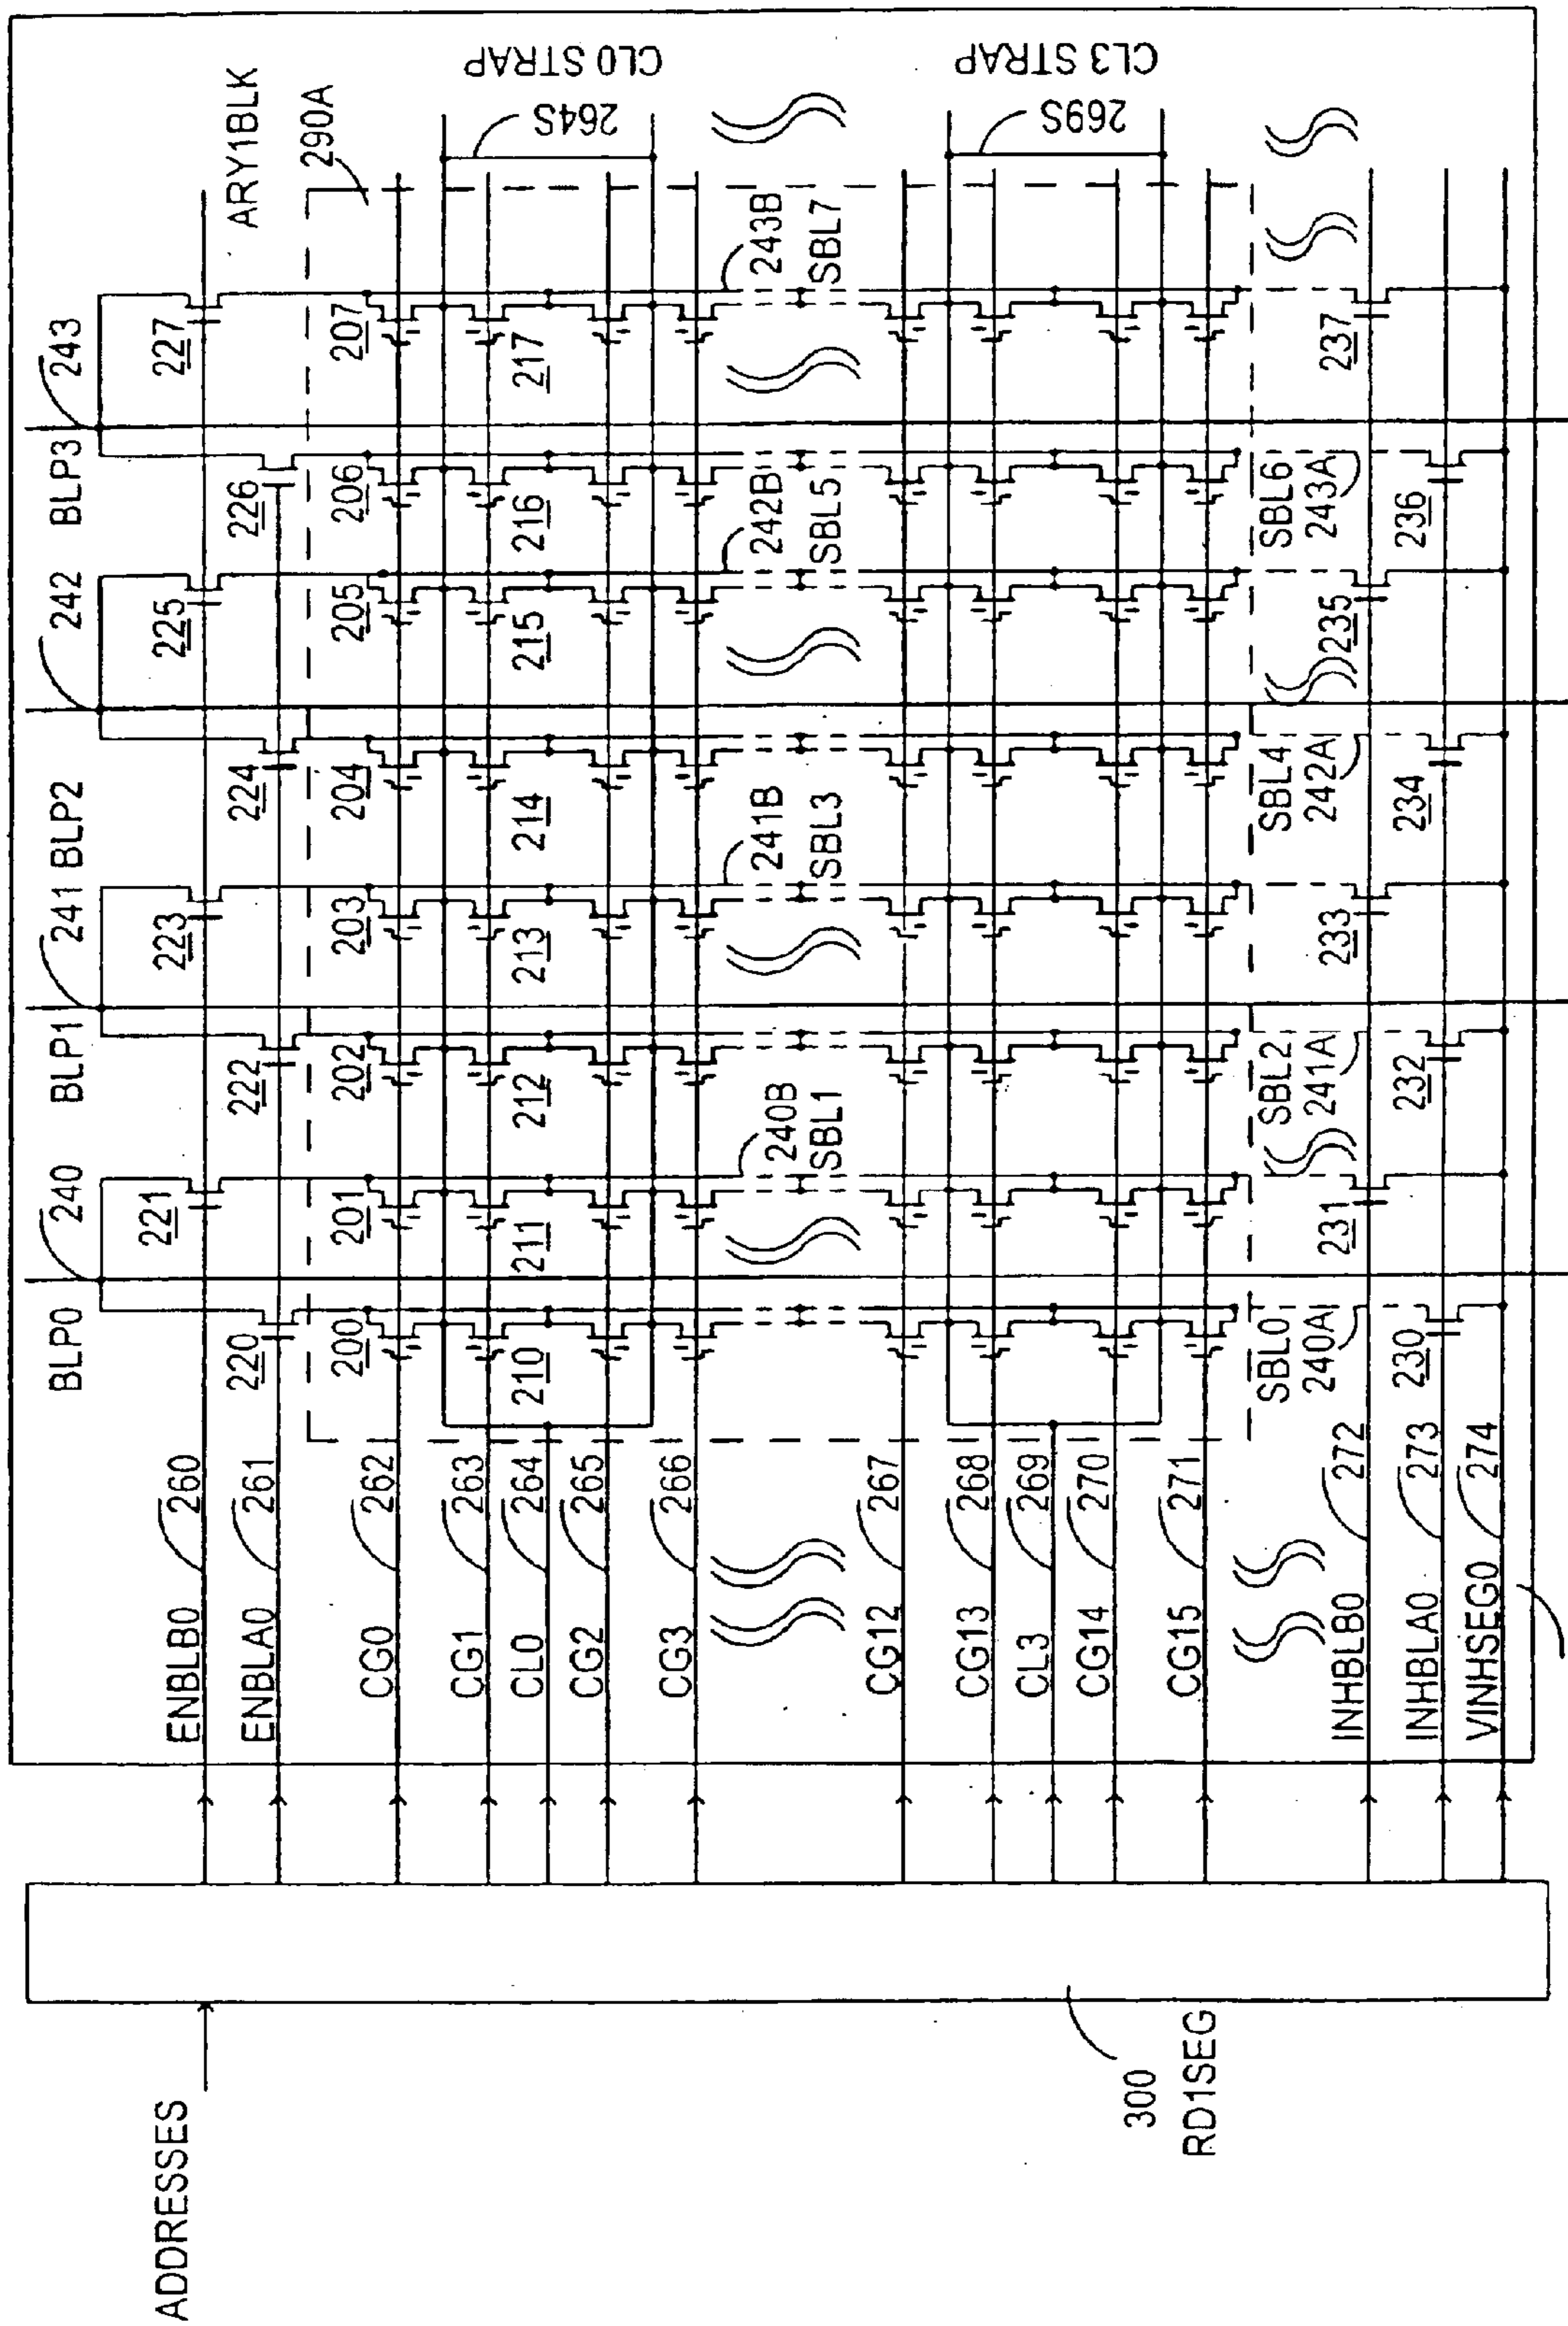 ADDRESSES
300
RD1SEG
ENBLB0 260
ENBLA0 261
CG0 262
CG1 263
CL0 264
CG2 265
CG3 266
CG12 267
CG13 268
CL3 269
CG14 270
CG15 271
INHBLB0 272
INHBLA0 273
VINHSEG0 274
BLP0 240
BLP1 241
BLP2 242
BLP3 243
220 221 222 223 224 225 226 227
ARY1BLK
290A
200 201 202 203 204 205 206 207
210 211 212 213 214 215 216 217
CL0 STRAP
264S
240B
SBL1
241B
SBL3
242B
SBL5
243B
SBL7
CL3 STRAP
269S
SBL0
240A
SBL2
241A
SBL4
242A
SBL6
243A
230 231 232 233 234 235 236 237